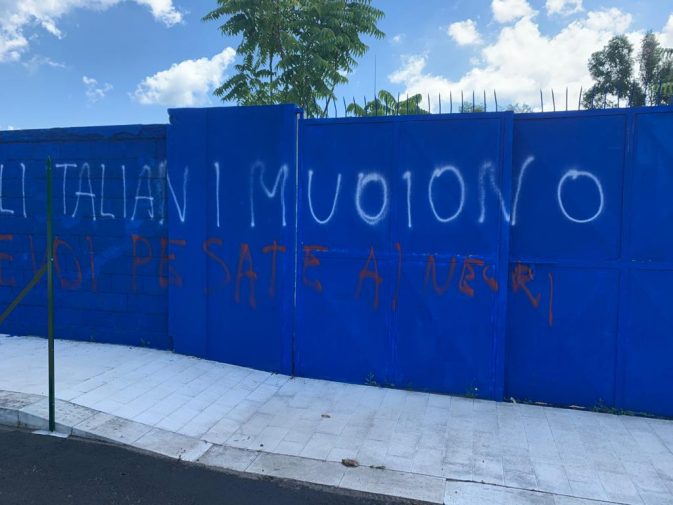 LI ITALIANI MUOIONO
E VOI PESATE AI NEGRI